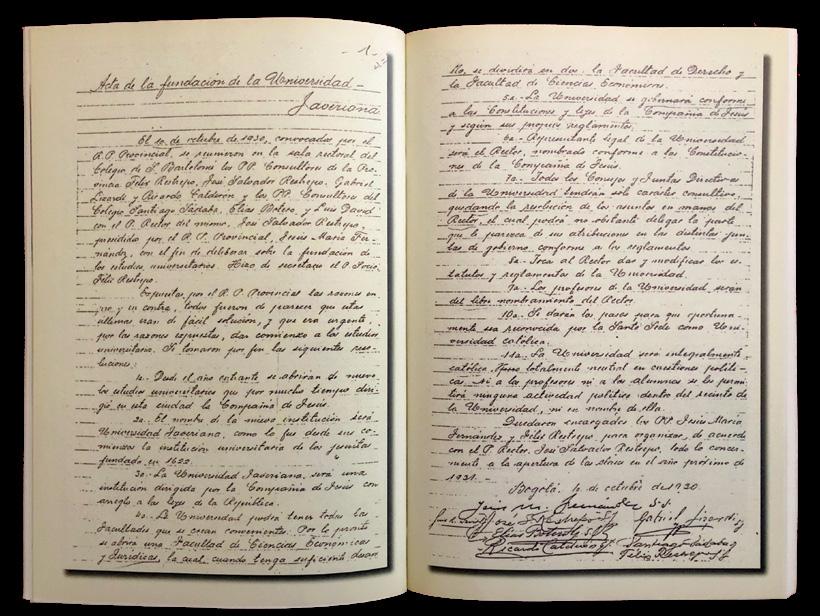 - 1 -
Acta de la fundación de la Universidad
Javeriana
El 1o. de octubre de 1930, convocados por el
R.P. Provincial, se reunieron en la sala rectoral del
Colegio de S. Bartolomé los PP. Consultores de la Pro-
vincia Félix Restrepo, José Salvador Restrepo, Gabriel
Lizardi y Ricardo Calderón y los PP. Consultores del
Colegio Santiago Páraba, Elías Botero, y Luis David
con el P. Rector del mismo, José Salvador Restrepo,
presididos por el R.P. Provincial, Jesús María Fer-
nández, con el fin de deliberar sobre la fundación de
los estudios universitarios. Hizo de secretario el P. Socio
Félix Restrepo.
Expuestas por el R.P. Provincial las razones en
pro y en contra, todos fueron de parecer que estas
últimas eran de fácil solución, y que era urgente,
por las razones expuestas, dar comienzo a los estudios
universitarios. Se tomaron por fin las siguientes reso-
luciones:
1a. Desde el año entrante se abrirán de nuevo
los estudios universitarios que por mucho tiempo diri-
gió en esta ciudad la Compañía de Jesús.
2a. El nombre de la nueva institución será
Universidad Javeriana, como lo fue desde sus co-
mienzos la institución universitaria de los jesuitas
fundada en 1622.
3a. La Universidad Javeriana, será una
institución dirigida por la Compañía de Jesús con
arreglo a las leyes de la República.
4a. La Universidad podrá tener todas las
Facultades que se crean convenientes. Por lo pronto
se abrirá una Facultad de Ciencias Económicas
y Jurídicas, la cual cuando tenga suficiente desarr-
llo, se dividirá en dos: la Facultad de Derecho y
la Facultad de Ciencias Económicas.
5a. La Universidad se gobernará conforme
a las Constituciones y leyes de la Compañía de Jesús
y según sus propios reglamentos.
6a. Representante legal de la Universidad
será el Rector, nombrado conforme a las Constitucio-
nes de la Compañía de Jesús.
7a. Todos los Consejos y Juntas Directivas
de la Universidad tendrán solo carácter consultivo,
quedando la resolución de los asuntos en manos del
Rector, el cual podrá no obstante delegar la parte
que le parezca de sus atribuciones en las distintas jun-
tas de gobierno, conforme a los reglamentos.
8a. Toca al Rector dar y modificar los es-
tatutos y reglamentos de la Universidad.
9a. Los profesores de la Universidad serán
del libre nombramiento del Rector.
10a. Se darán los pasos para que oportuna-
mente sea reconocida por la Santa Sede como Uni-
versidad católica.
11a. La Universidad será integralmente
católica, pero totalmente neutral en cuestiones políti-
cas. Ni a los profesores ni a los alumnos se les permi-
tirá ninguna actividad política dentro del recinto de
la Universidad, ni en nombre de ella.
Quedaron encargados los PP. Jesús María
Fernández y Félix Restrepo, para organizar, de acuerdo
con el P. Rector, José Salvador Restrepo, todo lo concer-
niente a la apertura de las clases en el año próximo de
1931.
Bogotá, 1o de octubre de 1930
Jesús M. Fernández S.J.
José S. Restrepo S.J. Gabriel Lizardi S.J.
Elías Botero S.J.
Ricardo Calderón S.J. Santiago
Félix Restrepo S.J.